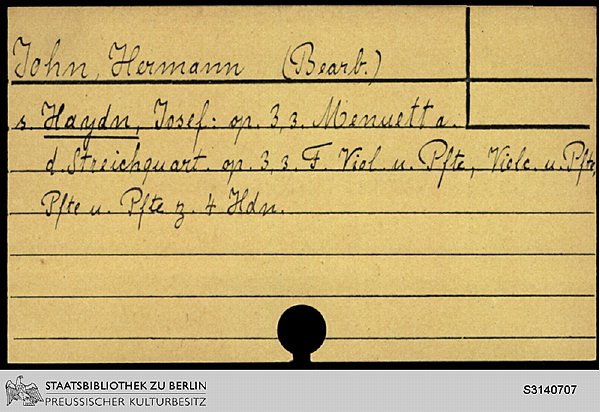 John, Hermann (Bearb.)
s. Haydn, Josef: op. 3,3. Menuett a.
d. Streichquart. op. 3,3. F. Viol. u. Pfte, Vlclc. u. Pfte,
Pfte u. Pfte z. 4 Hdn.
STAATSBIBLIOTHEK ZU BERLIN
PREUSSISCHER KULTURBESITZ
S3140707